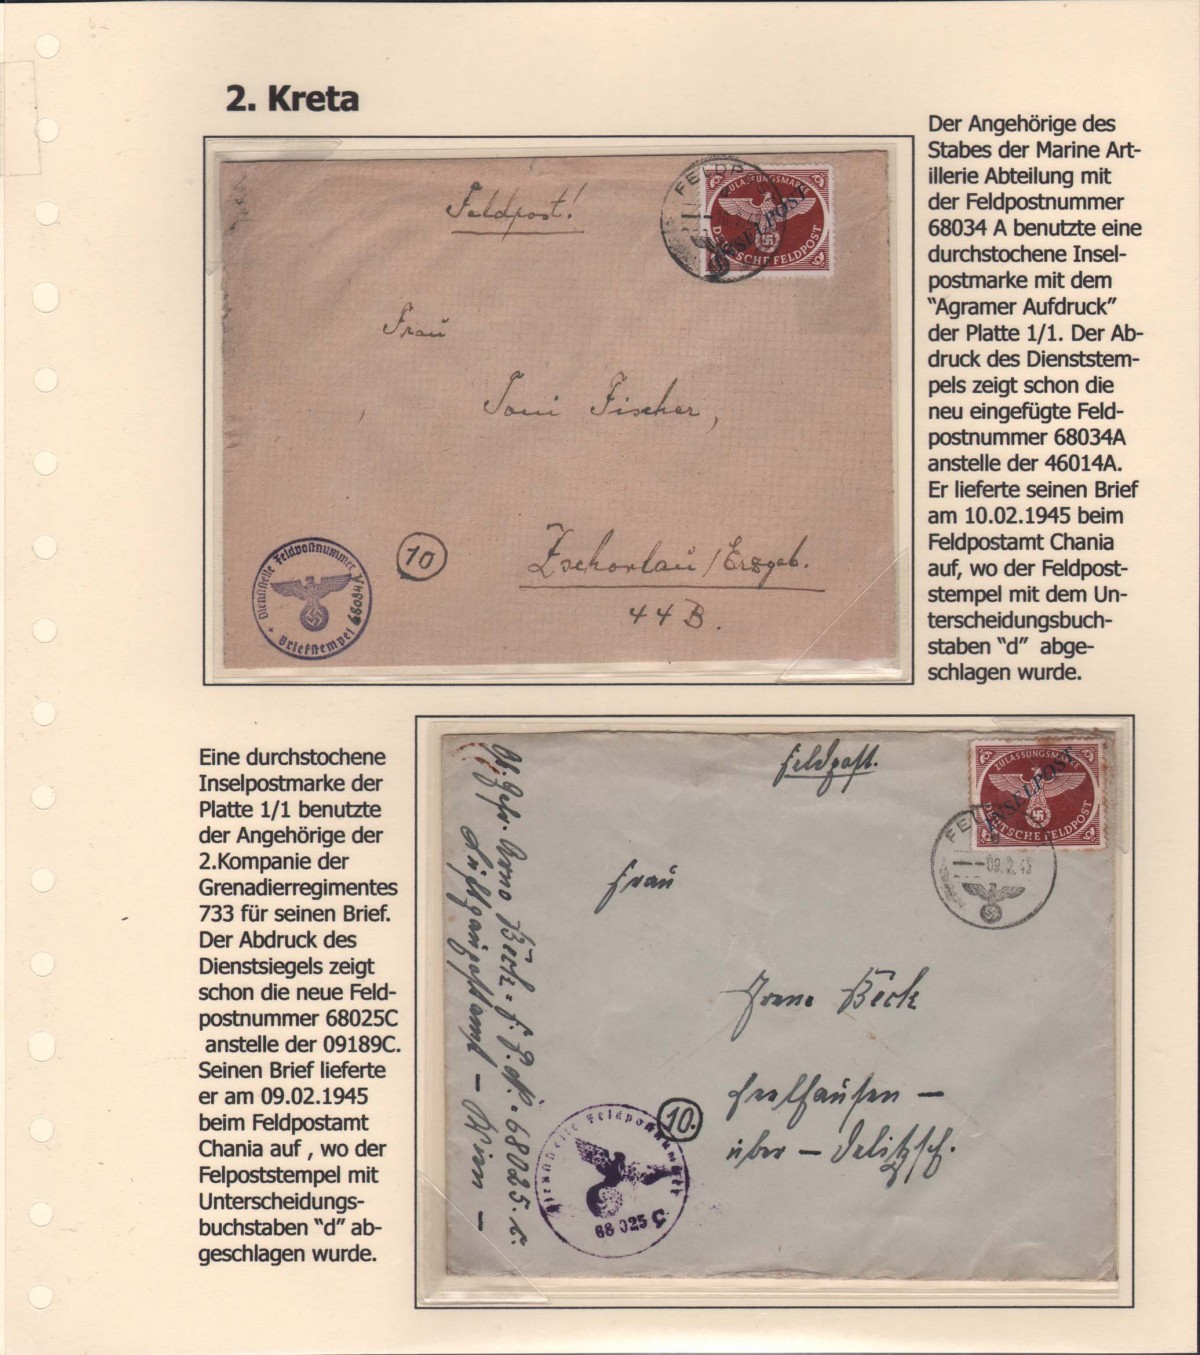 2. Kreta
Der Angehörige des
Stabes der Marine Art-
illerie Abteilung mit
der Feldpostnummer
68034 A benutzte eine
durchstochene Insel-
postmarke mit dem
“Agramer Aufdruck”
der Platte 1/1. Der Ab-
druck des Dienststem-
pels zeigt schon die
neu eingefügte Feld-
postnummer 68034A
anstelle der 46014A.
Er lieferte seinen Brief
am 10.02.1945 beim
Feldpostamt Chania
auf, wo der Feldpost-
stempel mit dem Un-
terscheidungsbuch-
staben “d”  abge-
schlagen wurde.
Feldpost!
ZULASSUNGSMARKE
INSELPOST
DEUTSCHE FELDPOST
Frau
Toni Fischer,
Zschorlau/Erzgeb.
44 B.
10
Dienststelle Feldpostnummer 68034
Briefstempel
Eine durchstochene
Inselpostmarke der
Platte 1/1 benutzte
der Angehörige der
2.Kompanie der
Grenadierregimentes
733 für seinen Brief.
Der Abdruck des
Dienstsiegels zeigt
schon die neue Feld-
postnummer 68025C
anstelle der 09189C.
Seinen Brief lieferte
er am 09.02.1945
beim Feldpostamt
Chania auf , wo der
Felpoststempel mit
Unterscheidungs-
buchstaben “d” ab-
geschlagen wurde.
Feldpost.
ZULASSUNGSMARKE
INSELPOST
DEUTSCHE FELDPOST
09.2.45
Frau
Beck
über – Delitzsch.
10.
Dienststelle Feldpostnummer
68025 C
Luftgaupostamt – Wien –